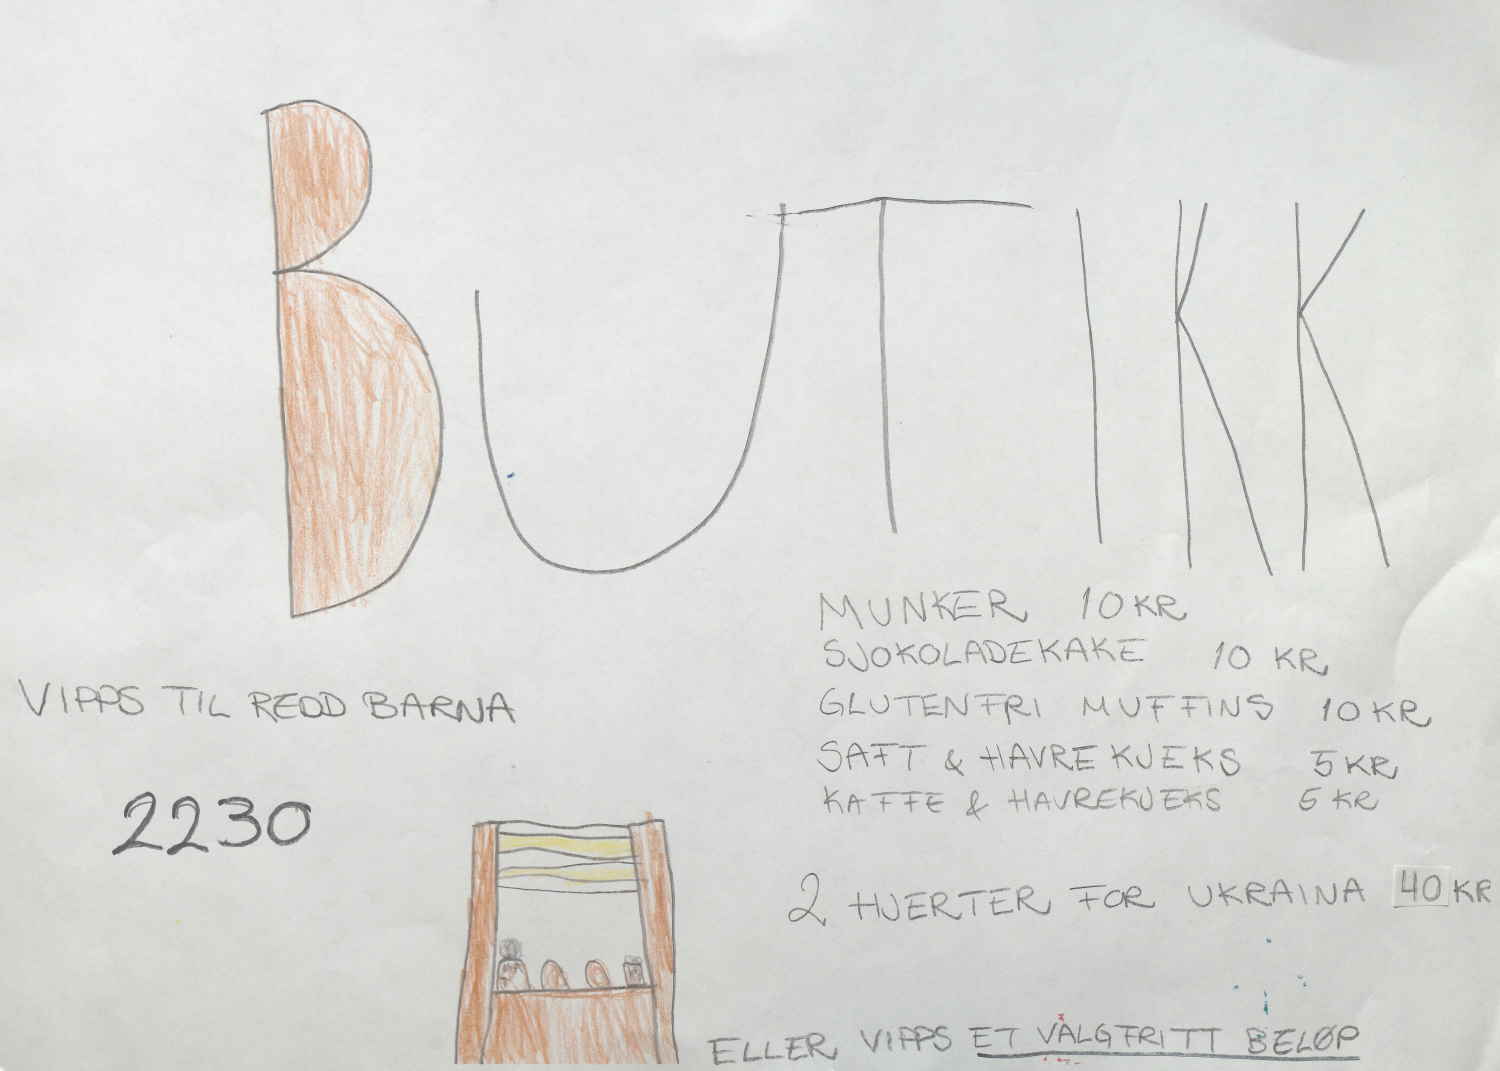 BUTIKK
MUNKER 10 KR
SJOKOLADEKAKE 10 KR
VIPPS TIL REDD BARNA
GLUTENFRI MUFFINS 10 KR
2230
SAFT & HAVREKJEKS 5 KR
KAFFE & HAVREKJEKS 5 KR
2 HJERTER FOR UKRAINA 40 KR
ELLER VIPPS ET VALGFRITT BELØP